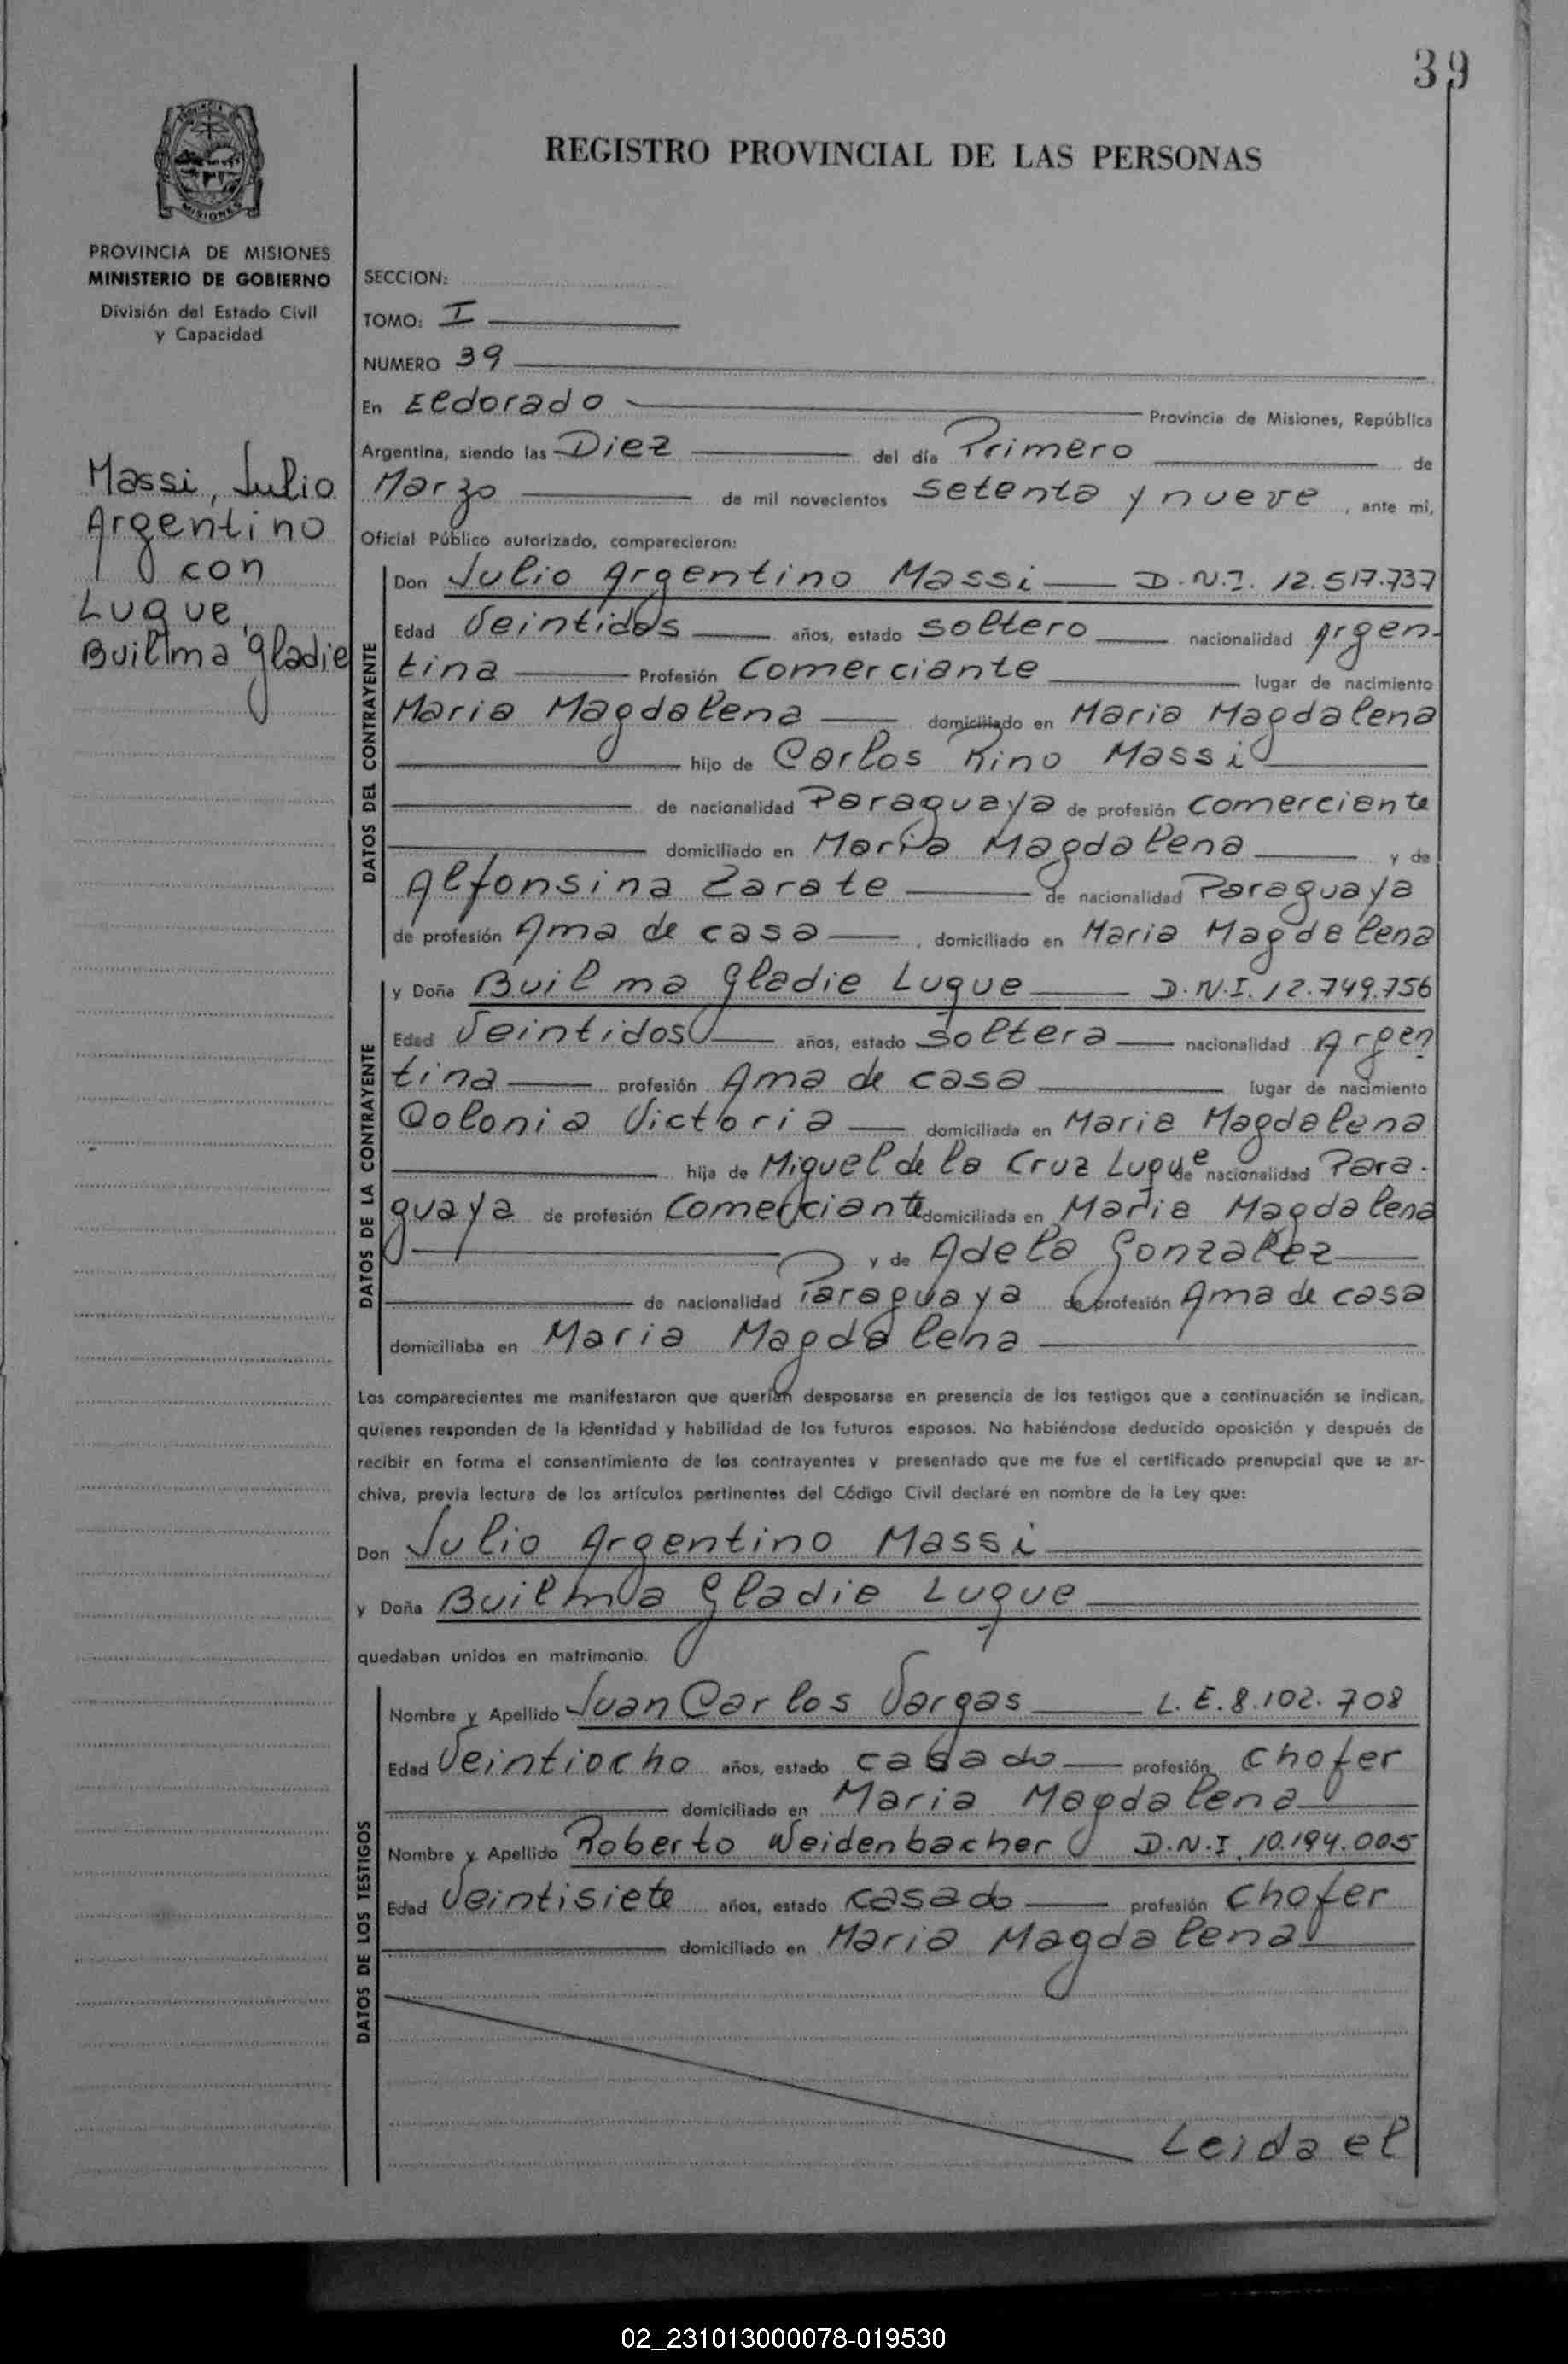 39
PROVINCIA
MISIONES
REGISTRO PROVINCIAL DE LAS PERSONAS
PROVINCIA DE MISIONES
MINISTERIO DE GOBIERNO
División del Estado Civil
y Capacidad
Massi, Julio
Argentino
con
Luque,
Builma Gladie
SECCION:
TOMO: I
NUMERO 39
En Eldorado Provincia de Misiones, República
Argentina, siendo las Diez del día Primero de
Marzo de mil novecientos setenta y nueve, ante mi,
Oficial Público autorizado, comparecieron:
DATOS DEL CONTRAYENTE
Don Julio Argentino Massi D.N.I. 12.517.737
Edad Veintidos años, estado soltero nacionalidad Argen-
tina Profesión Comerciante lugar de nacimiento
Maria Magdalena domiciliado en Maria Magdalena
hijo de Carlos Rino Massi
de nacionalidad Paraguaya de profesión comerciante
domiciliado en Maria Magdalena y de
Alfonsina Zarate de nacionalidad Paraguaya
de profesión Ama de casa, domiciliado en Maria Magdalena
DATOS DE LA CONTRAYENTE
y Doña Builma Gladie Luque D.N.I. 12.749.756
Edad Veintidos años, estado soltera nacionalidad Argen
tina profesión Ama de casa lugar de nacimiento
Colonia Victoria domiciliada en Maria Magdalena
hija de Miguel de la Cruz Luque de nacionalidad Para-
guaya de profesión Comerciante domiciliada en Maria Magdalena
y de Adela Gonzalez
de nacionalidad Paraguaya de profesión Ama de casa
domiciliaba en Maria Magdalena
Los comparecientes me manifestaron que querían desposarse en presencia de los testigos que a continuación se indican,
quienes responden de la identidad y habilidad de los futuros esposos. No habiéndose deducido oposición y después de
recibir en forma el consentimiento de los contrayentes y presentado que me fue el certificado prenupcial que se ar-
chiva, previa lectura de los artículos pertinentes del Código Civil declaré en nombre de la Ley que:
Don Julio Argentino Massi
y Doña Builma Gladie Luque
quedaban unidos en matrimonio.
DATOS DE LOS TESTIGOS
Nombre y Apellido Juan Carlos Vargas L.E. 8.102.708
Edad Veintiocho años, estado casado profesión chofer
domiciliado en Maria Magdalena
Nombre y Apellido Roberto Weidenbacher D.N.I. 10.194.005
Edad Veintisiete años, estado casado profesión chofer
domiciliado en Maria Magdalena
Leida el
02_231013000078-019530